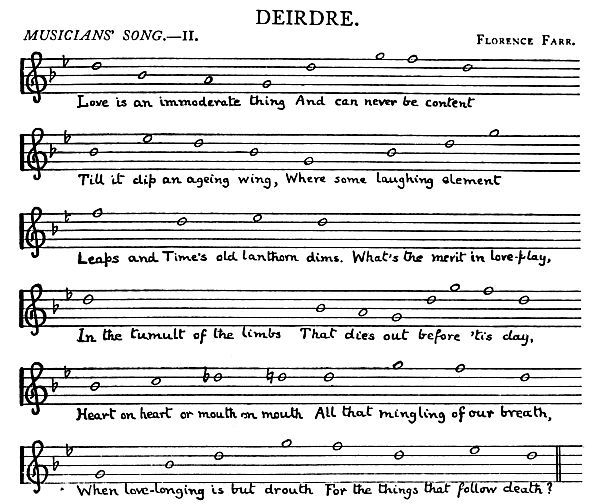 DEIRDRE.
MUSICIANS' SONG.—II.
FLORENCE FARR.
Love is an immoderate thing And can never be content
Till it dip an ageing wing, Where some laughing element
Leaps and Time's old lanthorn dims. What's the merit in love-play,
In the tumult of the limbs That dies out before 'tis day,
Heart on heart or mouth on mouth All that mingling of our breath,
When love-longing is but drouth For the things that follow death?